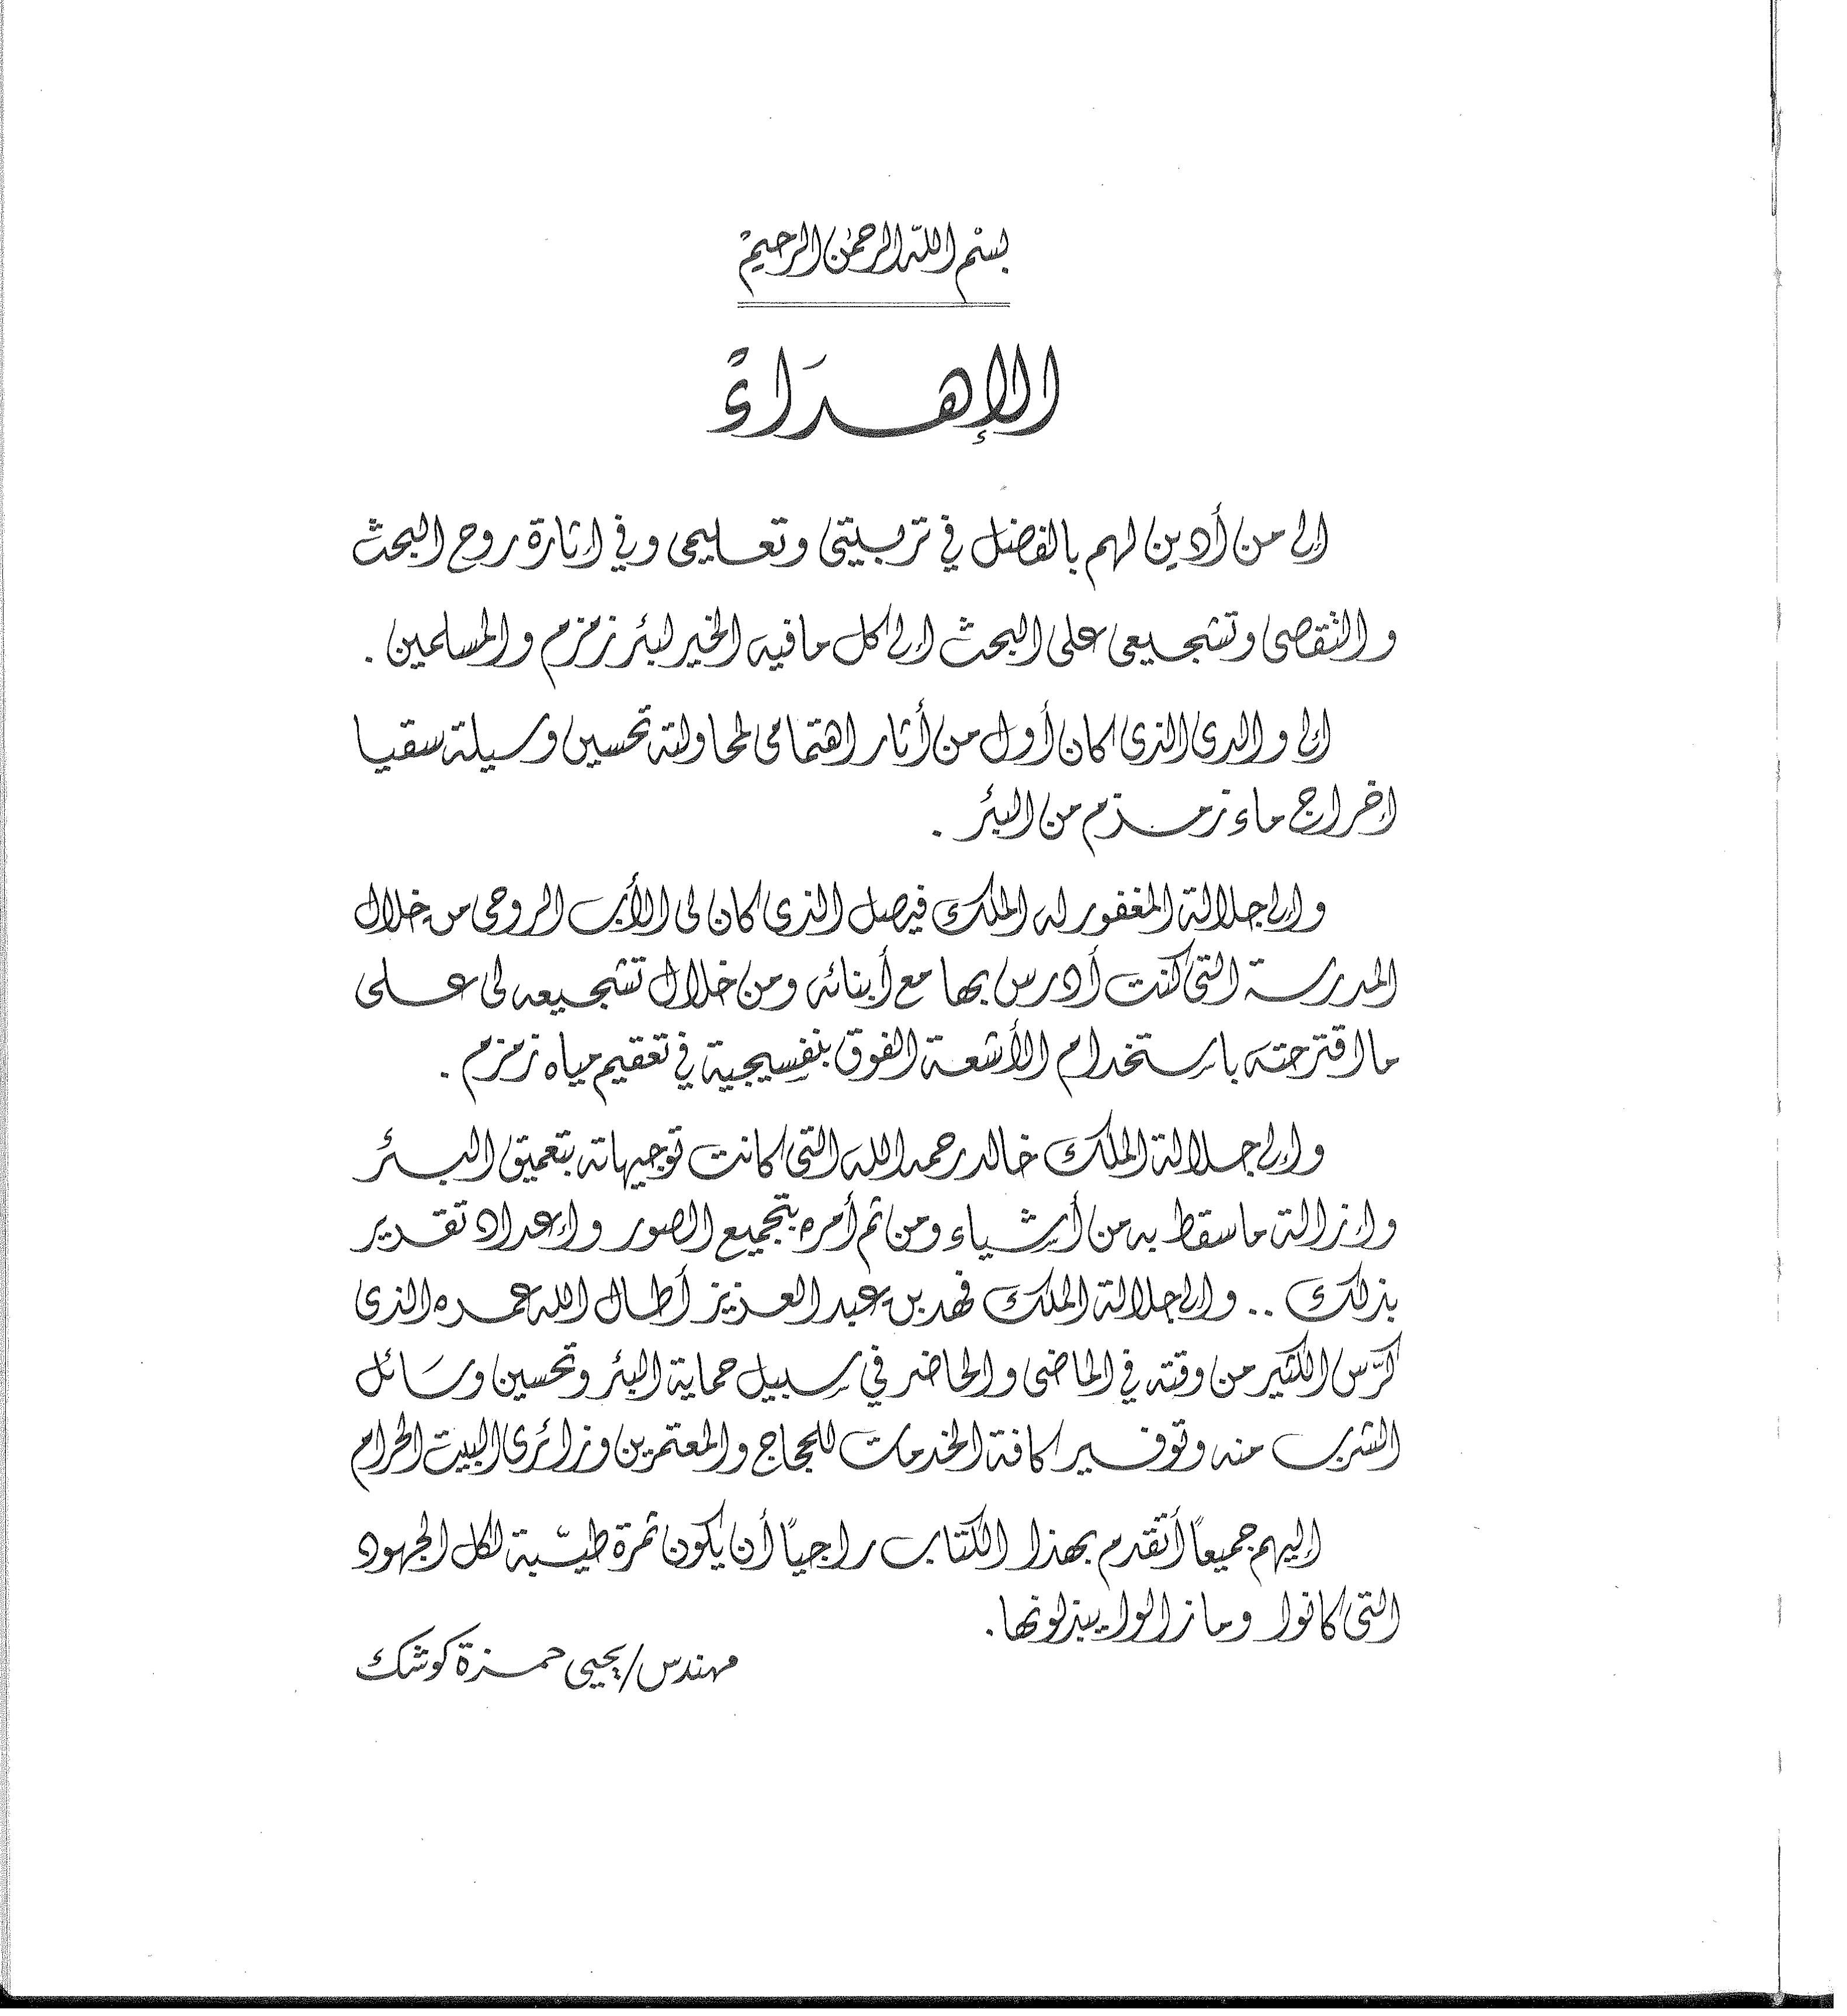 بسم الله الرحمن الرحيم
الإهداء
إلى من أدين لهم بالفضل في تربيتى وتعليمى وفي إثارة روح البحث
والتقصى وتشجيعى على البحث إلى كل مافيه الخير لبئر زمزم والمسلمين .
إلى والدى الذى كان أول من أثار اهتمامى لمحاولته تحسين وسيلة سقيا
إخراج ماء زمزم من البئر .
وإلى جلالة المغفور له الملك فيصل الذى كان لى الأب الروحى من خلال
المدرسة التى كنت أدرس بها مع أبنائه ومن خلال تشجيعه لى على
ما اقترحته باستخدام الأشعة الفوق بنفسيجية في تعقيم مياه زمزم .
وإلى جلالة الملك خالد رحمه الله التى كانت توجيهاته بتعميق البئر
وإزالة ماسقط به من أشياء ومن ثم أمره بتجميع الصور وإعداد تقدير
بذلك .. وإلى جلالة الملك فهد بن عبد العزيز أطال الله عمره الذى
كرّس الكثير من وقته في الماضى والحاضر في سبيل حماية البئر وتحسين وسائل
الشرب منه وتوفير كافة الخدمات للحجاج والمعتمرين وزائرى البيت الحرام
إليهم جميعاً أتقدم بهذا الكتاب راجياً أن يكون ثمرة طيّبة لكل الجهود
التى كانوا ومازالوا يبذلونها .
مهندس/يحيى حمزة كوشك